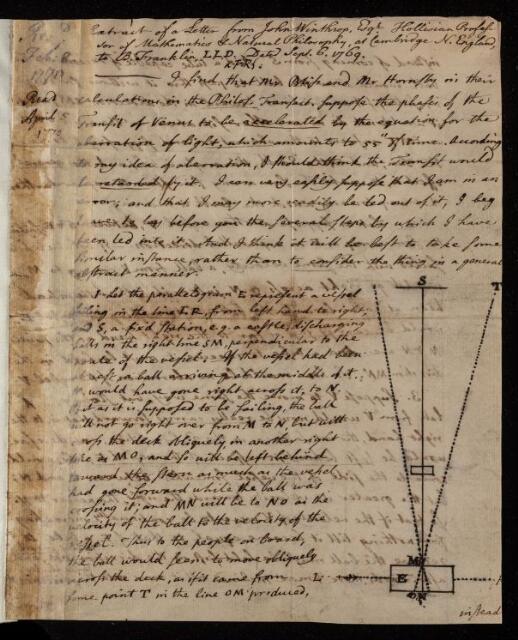 Extract of a Letter from John Winthrop, Esqr. Hollisian Profes-
sor of Mathematics & Natural Philosophy, at Cambridge N. England,
to B. Franklin, LLD. Dated Sept. 6. 1769.
& F.R.S.
I find that Mr. Bliss and Mr. Hornsby in their
calculations in the Philos. Transact. suppose the phases of the
Transit of Venus to be accelerated by the equation for the
aberration of light, which amounts to 55" of time. According
to my idea of aberration, I should think the Transit would
be retarded by it. I can very easily suppose that I am in an
error; and that I may more readily be led out of it, I beg
leave to lay before you the several steps by which I have
been led into it. And I think it will be best to take some
similar instance, rather than to consider the thing in a general
abstract manner.
Read
April 5
1770
1. Let the parallelogram E represent a vessel
sailing in the line L R, from left hand to right;
and S, a fix'd station, e.g. a castle, discharging
balls in the right line SM, perpendicular to the
of the vessel. If the vessel had been
at rest, a ball arriving at the middle of it,
would have gone right across it, to N.
But as it is supposed to be sailing, the ball
will not go right over from M to N, but will
cross the deck obliquely in another right
line as MO, and so will be left behind
toward the stern as much as the vessel
had gone forward while the ball was
crossing it; and MN will be to NO as the
velocity of the ball to the velocity of the
vessel. Thus to the people on board,
the ball would seem to move obliquely
across the deck, as if it came from
some point T in the line OM produced,
S
T
M
L
E
O N
instead